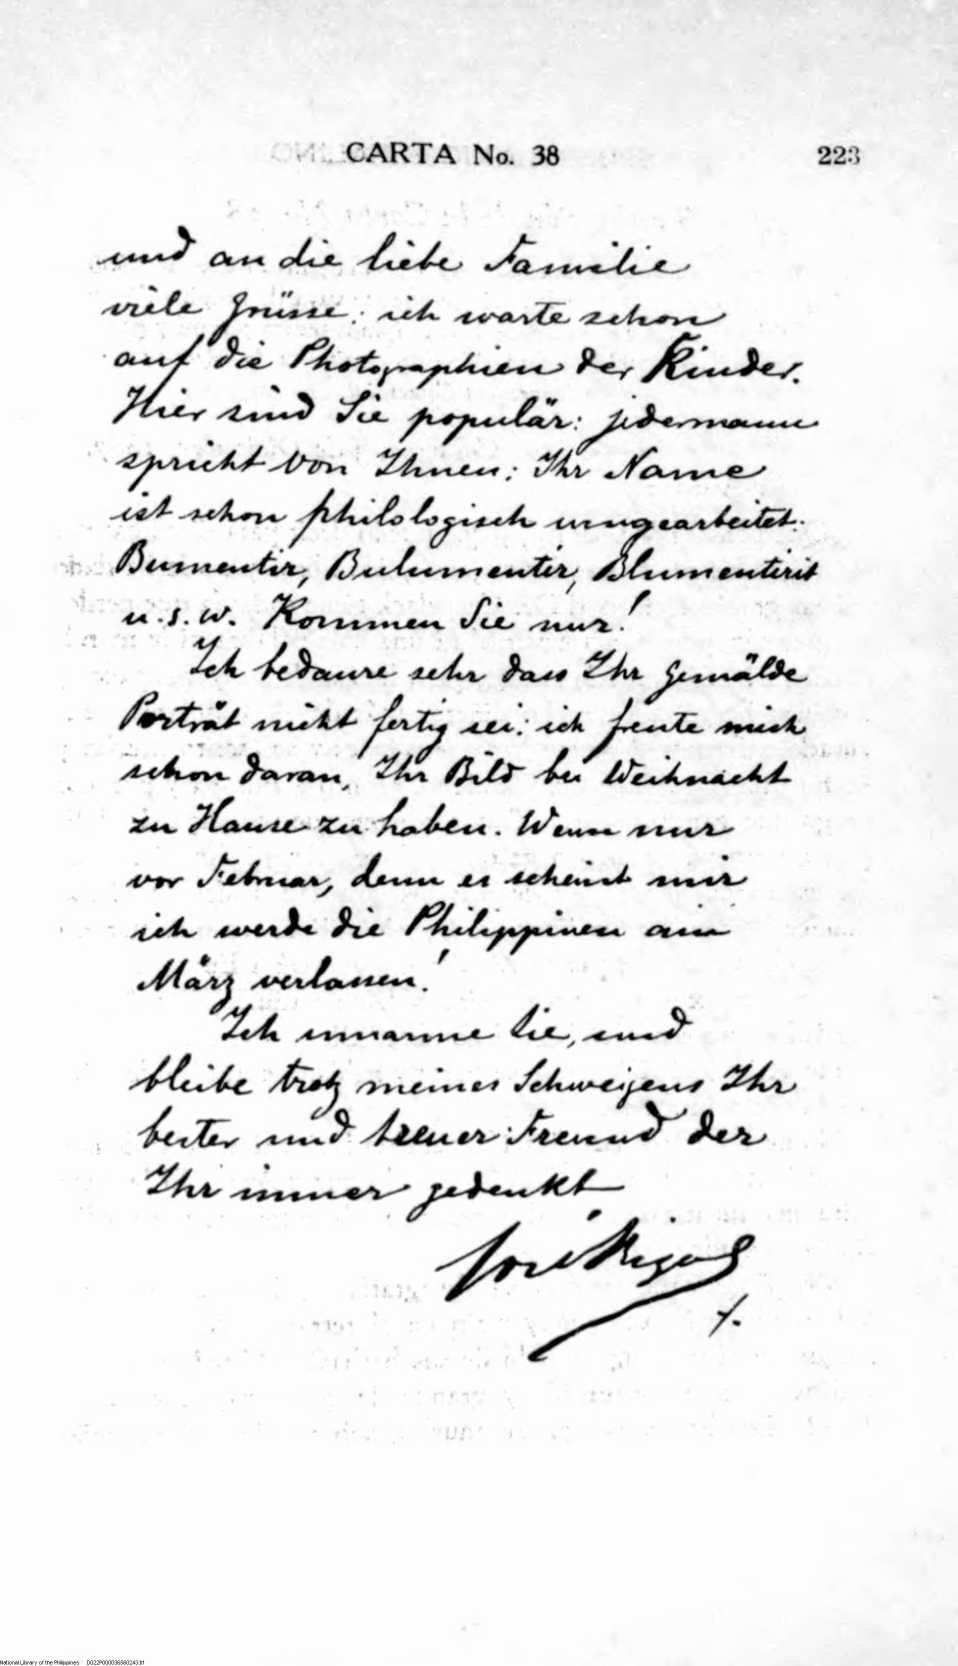 CARTA No. 38 223
und an die liebe Familie
viele Grüsse: ich warte schon
auf die Photographien der Kinder.
Hier sind Sie populär: jedermann
spricht von Ihnen; Ihr Name
ist schon philologisch umgearbeitet:
Bumentir, Bulumentir, Blumentirit
u. s. w. Kommen Sie nur!
Ich bedaure sehr dass Ihr Gemälde
Porträt nicht fertig sei: ich freute mich
schon daran, Ihr Bild bei Weihnacht
zu Hause zu haben. Wenn nur
vor Februar, denn es scheint mir
ich werde die Philippinen am
März verlassen!
Ich umarme Sie, und
bleibe trotz meines Schweigens Ihr
bester und treuer Freund der
Ihr immer gedenkt
José Rizal
National Library of the Philippines